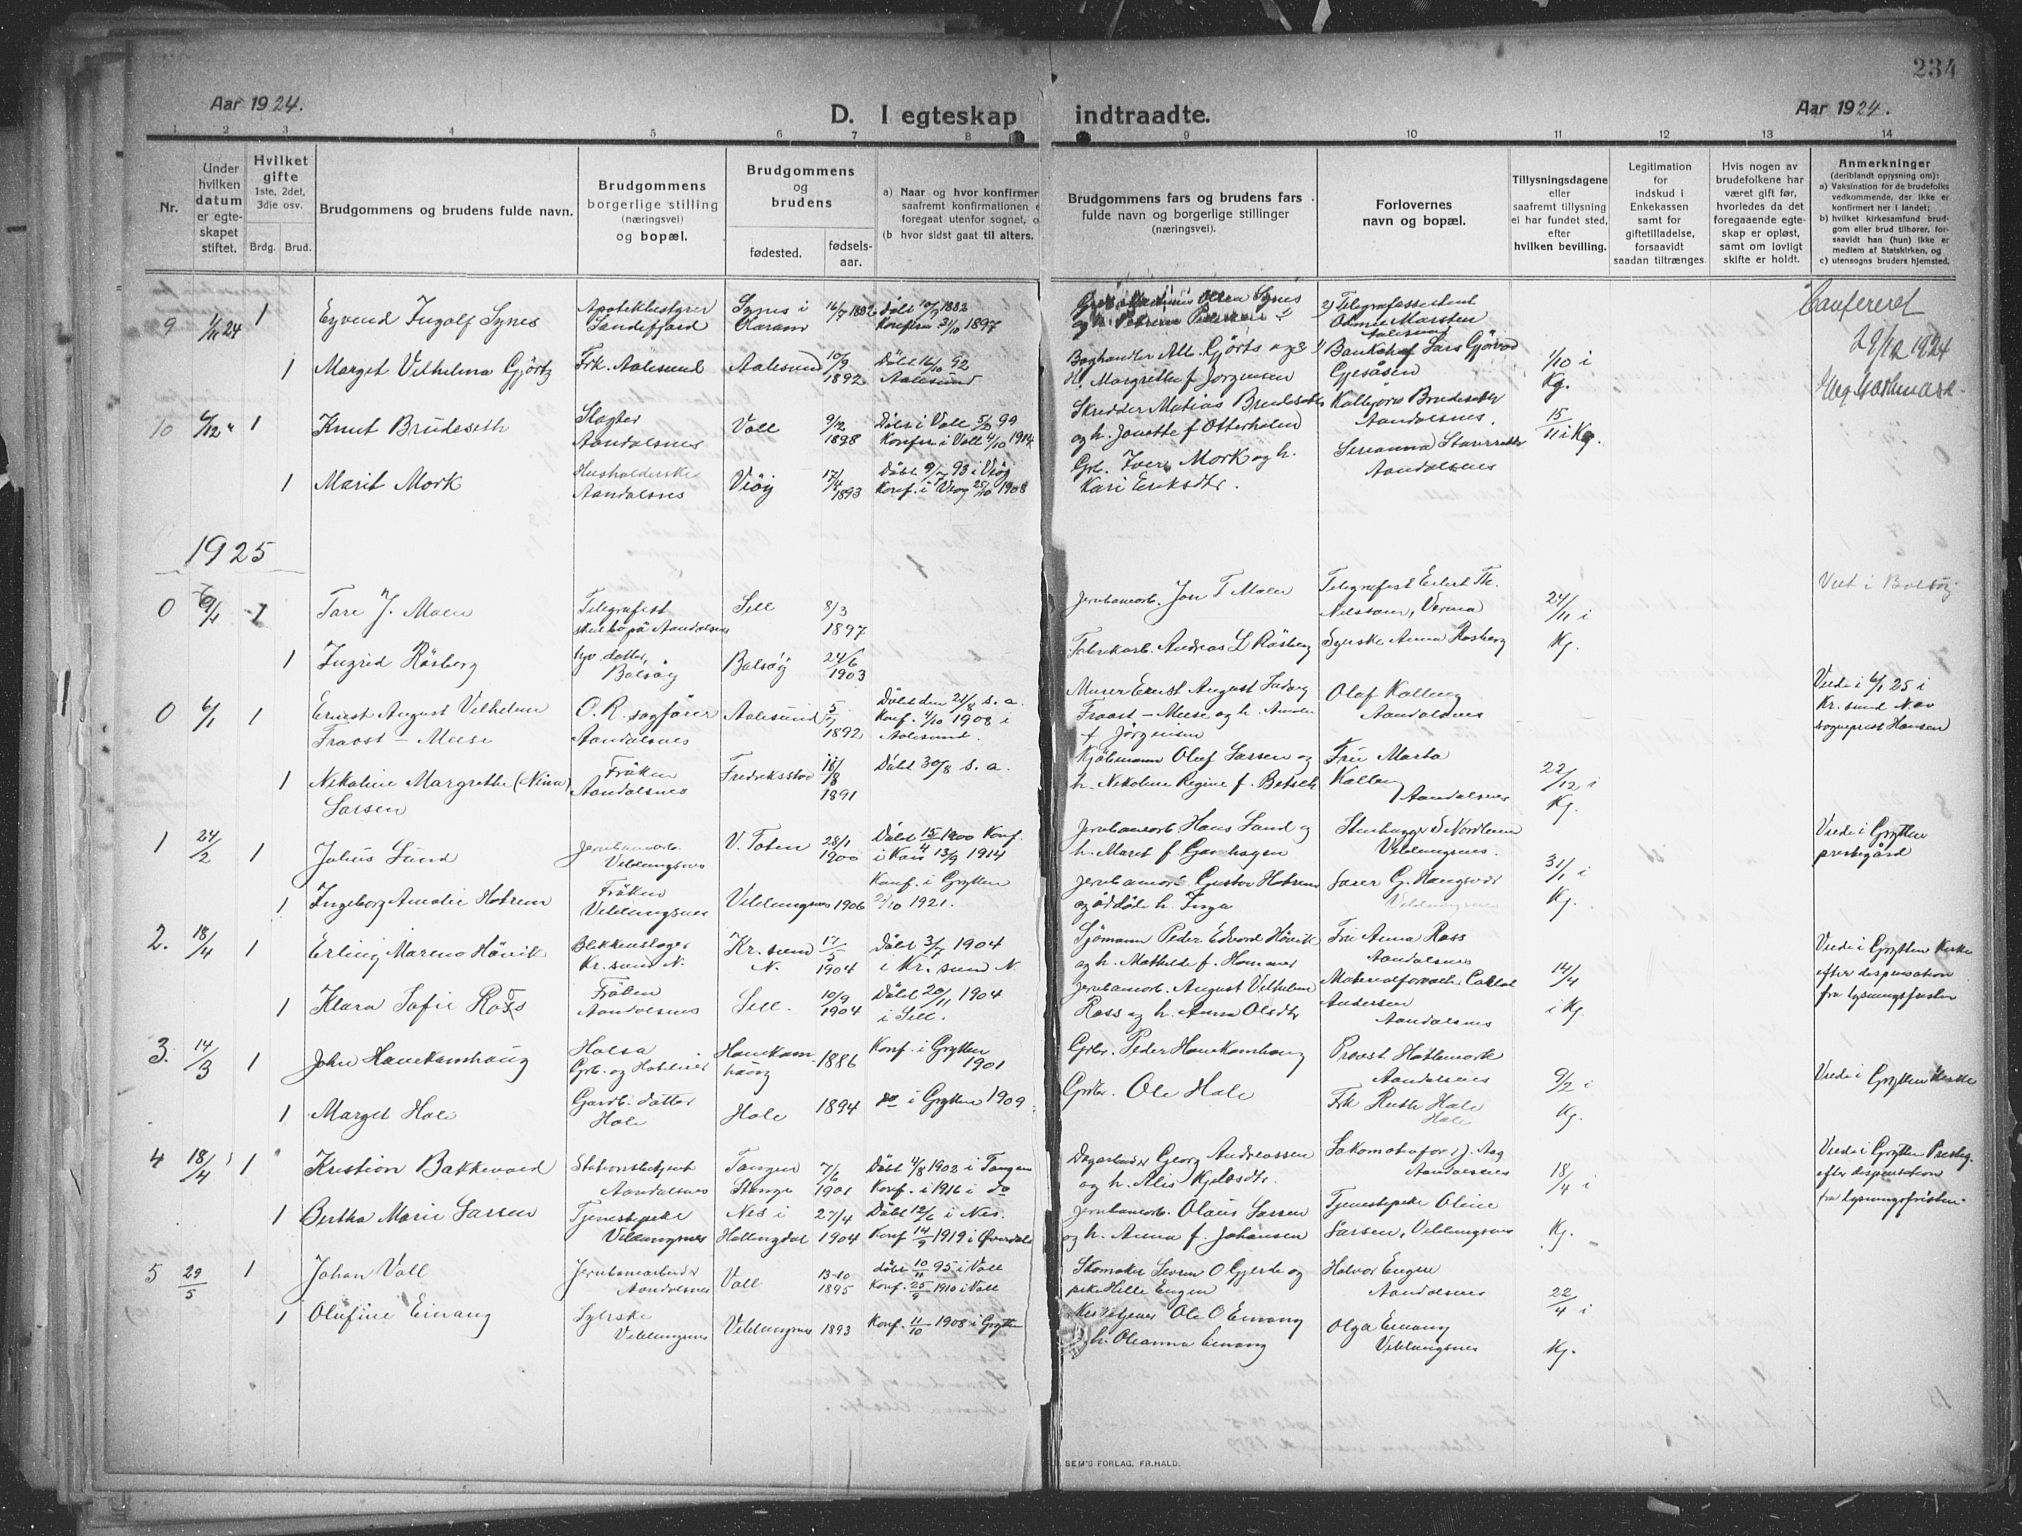 234
Aar 1924.
D. I egteskap indtraadte.
Aar 1924.
1 2 3 4 5 6 7 8 9 10 11 12 13 14
Nr.
Under hvilken datum er egteskapet stiftet.
Hvilket gifte
1ste, 2det, 3die osv.
Brdg. Brud.
Brudgommens og brudens fulde navn.
Brudgommens borgerlige stilling (næringsvei) og bopæl.
Brudgommens og brudens
fødested.
fødselsaar.
a) Naar og hvor konfirmer
saafremt konfirmationen
foregaat utenfor sognet, o
(b hvor sidst gaat til alters.
Brudgommens fars og brudens fars
fulde navn og borgerlige stillinger
(næringsvei).
Forlovernes
navn og bopæl.
Tillysningsdagene
eller
saafremt tillysning
ei har fundet sted,
efter
hvilken bevilling.
Legitimation
for
indskud i
Enkekassen
samt for
giftetilladelse,
forsaavidt
saadan tiltrænges.
Hvis nogen av
brudefolkene har
været gift før,
hvorledes da det
foregaaende egte-
skap er opløst,
samt om lovligt
skifte er holdt.
Anmerkninger
(deriblandt opysning om):
a) Vaksination for de brudefolks
vedkommende, der ikke er
konfirmert her i landet;
b) hvilket kirkesamfund brud-
gom eller brud tilhører, for-
saavidt han (hun) ikke er
medlem av Statskirken, og
c) utensogns bruders hjemsted.
9 1 Eyvind Ingolf Synes
Apotekbestyrer Sandefjord
Synes i Haram
Døbt 10/9 1882
Konfirm 31/10 1897
Telegrafassistent
Confereret
29/12 1924
1 Marget Vilhelma Gjörtz
Frk. Aalesund
Aalesund
10/9 1892
Døbt 16/10 92
Aalesund
Boghandler Alb. Gjörts og
h. Margrethe f Jorgensen
1/10 i Kg.
10 6/12 " 1 Knut Brudeseth
Slagter Aandalsnes
Voll
9/12 1898
Døbt i Voll 5/2 99
Konfirm i Voll 4/10 1914
Skredder Matias Brudeseth
og h. Jonette f Otterholm
Kolbjörn Brudeseth
Aandalsnes.
15/11 i Kg.
1 Marit Mork
Husholderske Aandalsnes
Viöy
17/4 1893
Døbt 9/7 93 i Viöy
Konf. i Viöy 25/10 1908
Grb. Iver Mork og h.
Kari Eriksdtr.
Aandalsnes
1925
0 1 Tore J. Moen
Telegrafist
skrebo på Aandalsnes
Sell
8/3 1897
Jernbanearb. Jon T Moen
Telegrafist Erlert Th.
Nilssen, Verma
24/11 i Kg.
Viet i Bolsöy
1 Ingrid Røsberg
hjv. datter, Bolsöy
Bolsöy
24/6 1903
Fabrikarb. Andreas L Røsberg
Syerske Anna Røsberg
0 6/1 1 Ernest August Vilhelm
Fraast - Meese
O.R. sagförer
Aandalsnes
Aalesund
5/7 1892
Döbt den 21/8 s. a.
Konf. 4/10 1908 i
Aalesund.
Murer Ernst August Ludvig
Fraast - Meese og h. Amalie
f Jörgensen
Olaf Kolberg
Aandalsnes
Viede i 6/1 25 i
Kr. sund N av
sogneprest Hansen
1 Nikoline Margrethe (Nina)
Larsen
Fröken
Aandalsnes
Fredriksstad
16/8 1891
Döbt 30/8 s. a.
Kjöbmann Oluf Larsen og
h. Nikoline Regine f. Betsch
Fru Marta
Kolberg
Aandalsnes
22/12 i Kg.
1 24/2 1 Julius Lund
Jernbanearb.
Veblungsnes
V. Toten
28/1 1900
Döbt 15/4 1900 Konf.
i Kors 13/9 1914
Jernbanearb. Hans Lund og
h. Maret f Garshagen
Stenhugger S Nordlien
Veblungsnes.
31/1 i Kg.
Viede i Grytten
prestegård
1 Ingeborg Amalie Hotrem
Fröken
Veblungsnes
Veblungsnes 1906
Konf. i Grytten
2/10 1921.
Jernbanearb Gustav Hotrem
og avdöde h. Inga
Veblungsnes
2. 18/4 1 Erling Mareno Hövik
Blikkenslager
Kr. sund N.
Kr. sund N.
17/5 1904
Döbt 3/7 1904
i Kr. sund N.
Sjömann Peder Edvard Hövik
og h. Mathilde f. Hammer
Fru Anna Ross
Aandalsnes
14/4 i Kg.
Viede i Grytten Kirke
efter dispensation
fra lysningsfristen
1 Klara Sofie Ross
Fröken
Aandalsnes
Sell.
10/9 1904
Döbt 20/11 1904
i Sell.
Jernbanearb. August Vilhelm
Ross og h. Anna Olsdtr
Andersen
Aandalsnes
3. 14/3 1 John Havekamhaug
Holsa
Havekamhaug
1886
Konf. i Grytten
1901
Grbr. Peder Havekamhaug
Provst Hoslemork
Aandalsnes
9/2 i Kg.
Viede i Grytten Kirke
1 Marget Hole
Gardb. datter
Hole
Hole
1894
do i Grytten 1909
Grbr. Ole Hole
Frk Ruth Hole
Hole
4 18/4 1 Kristian Bakkevold
Stationsbetjent
Aandalsnes
Tangen
Stange
7/6 1901
Döbt 4/8 1902 i Tangen
Konf. i 1916 i do
Dagarbeider Georg Andreassen
Aandalsnes
18/4 i Kg.
Viede i Grytten Presteg.
efter dispensation
fra lysningsfristen.
1 Bertha Marie Larsen
Tjenestepike
Veblungsnes
Nes i
Hallingdal
27/4 1904
Döbt 12/6 i Nes.
Konf. 14/9 1919 i Övredal
Jernbanearb. Olaus Larsen
og h. Anna f. Johansen
Tjenestepike Oline
Larsen, Veblungsnes
5 29/5 1 Johan Voll
Jernbanearbeider
Aandalsnes
Voll
13-10 1895
döbt 10/11 95 i Voll
Konf. 25/9 1910 i Voll
Skomaker Sevrin O Gjerde og
pike Helle Engen
Halvor Engen
Aandalsnes
22/4 i Kg.
1 Olufine Einang
Syerske
Veblungsnes
Veblungsnes 1893
Konf. 11/10 1908 i Grytten
Ole O Einang
h. Oleanna Einang
Olga Einang
Veblungsnes
SEM'S FORLAG, FR.HALD.